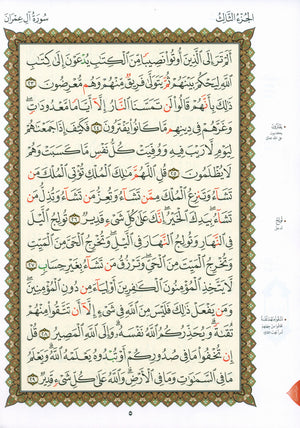 الجزء الثالث
سورة آل عمران
أَلَمْ تَرَ إِلَى الَّذِينَ أُوتُوا نَصِيبًا مِّنَ الْكِتَٰبِ يُدْعَوْنَ إِلَىٰ كِتَٰبِ
اللَّهِ لِيَحْكُمَ بَيْنَهُمْ ثُمَّ يَتَوَلَّىٰ فَرِيقٌ مِّنْهُمْ وَهُم مُّعْرِضُونَ ٢٣
ذَٰلِكَ بِأَنَّهُمْ قَالُوا لَن تَمَسَّنَا النَّارُ إِلَّا أَيَّامًا مَّعْدُودَٰتٍ
وَغَرَّهُمْ فِي دِينِهِم مَّا كَانُوا يَفْتَرُونَ ٢٤ فَكَيْفَ إِذَا جَمَعْنَٰهُمْ
لِيَوْمٍ لَّا رَيْبَ فِيهِ وَوُفِّيَتْ كُلُّ نَفْسٍ مَّا كَسَبَتْ وَهُمْ
لَا يُظْلَمُونَ ٢٥ قُلِ اللَّهُمَّ مَٰلِكَ الْمُلْكِ تُؤْتِي الْمُلْكَ مَن
تَشَاءُ وَتَنزِعُ الْمُلْكَ مِمَّن تَشَاءُ وَتُعِزُّ مَن تَشَاءُ وَتُذِلُّ مَن
تَشَاءُ بِيَدِكَ الْخَيْرُ إِنَّكَ عَلَىٰ كُلِّ شَيْءٍ قَدِيرٌ ٢٦ تُولِجُ الَّيْلَ
فِي النَّهَارِ وَتُولِجُ النَّهَارَ فِي الَّيْلِ وَتُخْرِجُ الْحَيَّ مِنَ الْمَيِّتِ
وَتُخْرِجُ الْمَيِّتَ مِنَ الْحَيِّ وَتَرْزُقُ مَن تَشَاءُ بِغَيْرِ حِسَابٍ ٢٧
لَّا يَتَّخِذِ الْمُؤْمِنُونَ الْكَٰفِرِينَ أَوْلِيَاءَ مِن دُونِ الْمُؤْمِنِينَ
وَمَن يَفْعَلْ ذَٰلِكَ فَلَيْسَ مِنَ اللَّهِ فِي شَيْءٍ إِلَّا أَن تَتَّقُوا مِنْهُمْ
تُقَىٰةً وَيُحَذِّرُكُمُ اللَّهُ نَفْسَهُ وَإِلَى اللَّهِ الْمَصِيرُ ٢٨ قُلْ
إِن تُخْفُوا مَا فِي صُدُورِكُمْ أَوْ تُبْدُوهُ يَعْلَمْهُ اللَّهُ وَيَعْلَمُ
مَا فِي السَّمَٰوَٰتِ وَمَا فِي الْأَرْضِ وَاللَّهُ عَلَىٰ كُلِّ شَيْءٍ قَدِيرٌ ٢٩